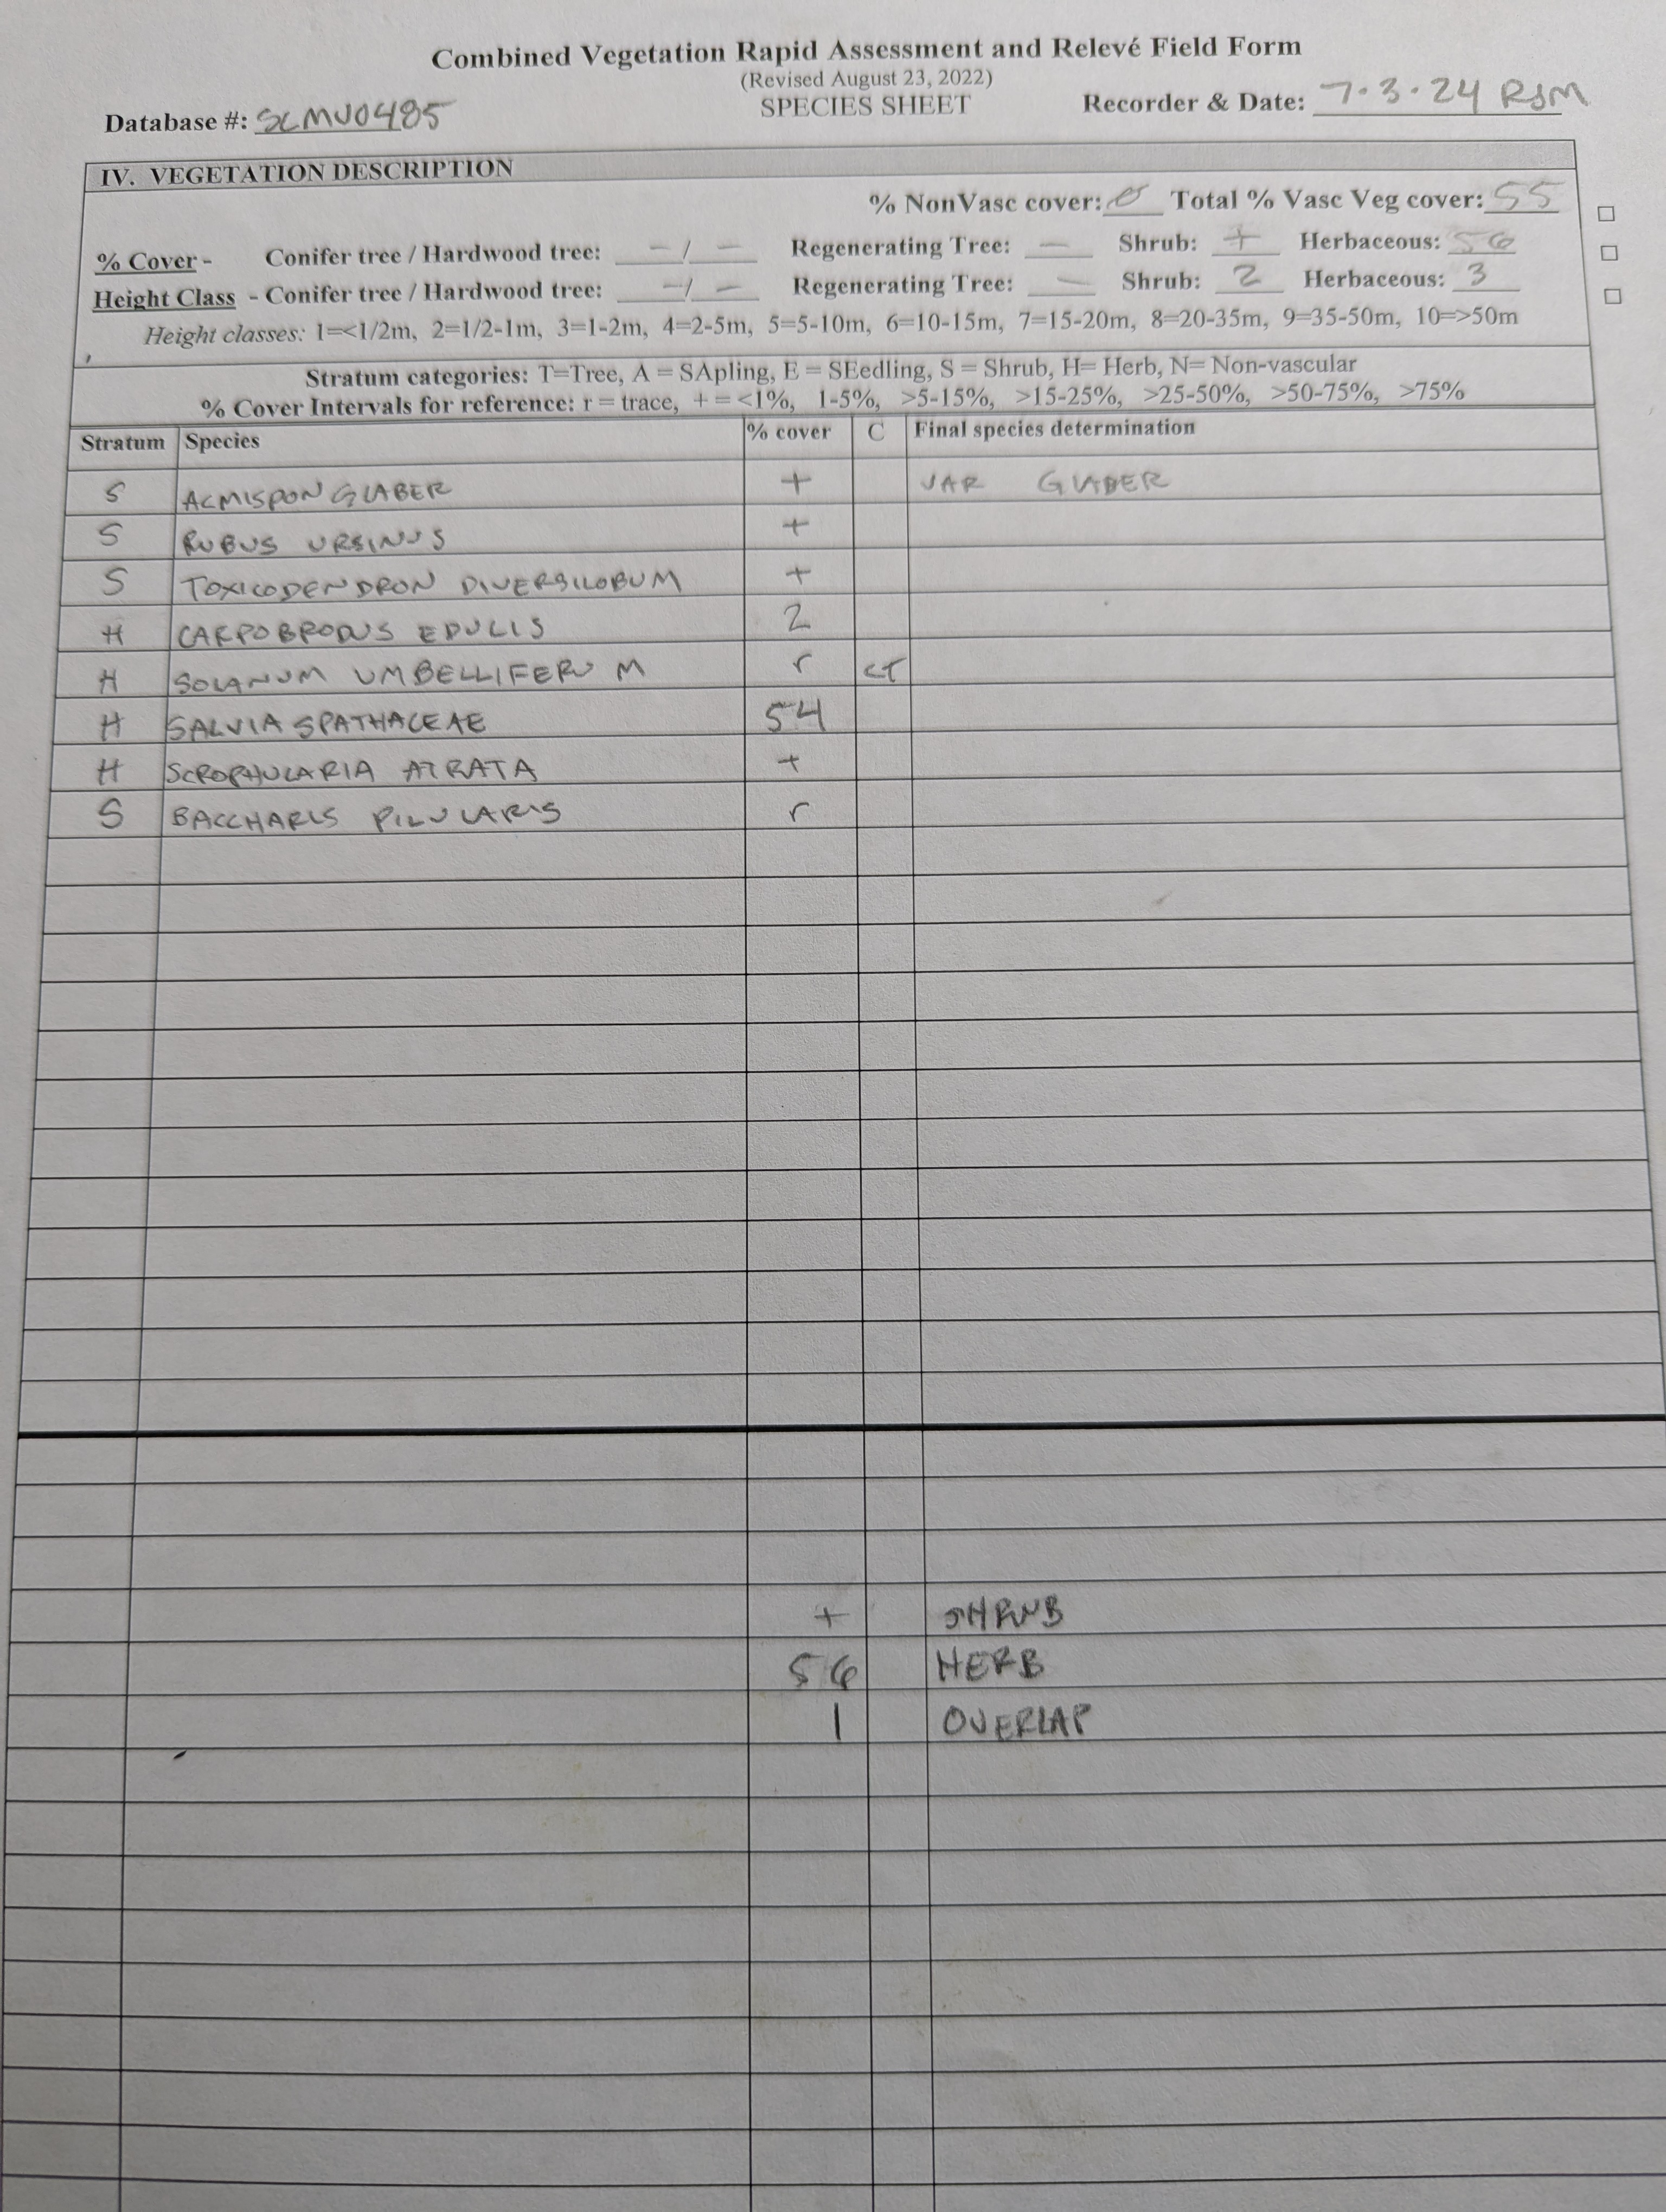 Combined Vegetation Rapid Assessment and Relevé Field Form
(Revised August 23, 2022)
Database #: SCMV0485 SPECIES SHEET Recorder & Date: 7.3.24 RJM
IV. VEGETATION DESCRIPTION
% NonVasc cover: 0 Total % Vasc Veg cover: 55
% Cover - Conifer tree / Hardwood tree: — / — Regenerating Tree: — Shrub: + Herbaceous: 56
Height Class - Conifer tree / Hardwood tree: — / — Regenerating Tree: — Shrub: 2 Herbaceous: 3
Height classes: 1=<1/2m, 2=1/2-1m, 3=1-2m, 4=2-5m, 5=5-10m, 6=10-15m, 7=15-20m, 8=20-35m, 9=35-50m, 10=>50m
Stratum categories: T=Tree, A = SApling, E = SEedling, S = Shrub, H= Herb, N= Non-vascular
% Cover Intervals for reference: r = trace, + = <1%, 1-5%, >5-15%, >15-25%, >25-50%, >50-75%, >75%
Stratum Species % cover C Final species determination
S ACMISPON GLABER + VAR GLABER
S RUBUS URSINUS +
S TOXICODENDRON DIVERSILOBUM +
H CARPOBRODUS EDULIS 2
H SOLANUM UMBELLIFERUM r CT
H SALVIA SPATHACEAE 54
H SCROPHULARIA ATRATA +
S BACCHARIS PILULARIS r
+ SHRUB
56 HERB
1 OVERLAP